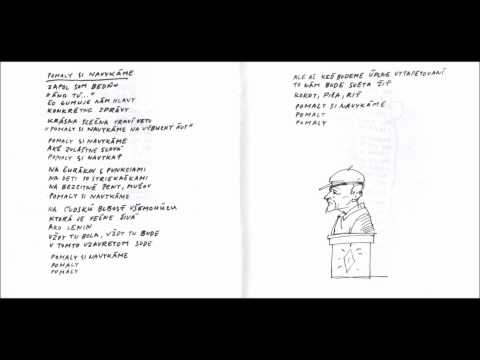 POMALY SI NAVYKÁME
ZAPOL SOM BEDŇU
ČO GUMUJE NÁM HLAVY
KONKRÉTNE ZPRÁVY
KRÁSNA SLEČNA TRAVÍ VETU
"POMALY SI NAVYKÁME NA VÝBUCHY ÁUT"
POMALY SI NAVYKÁME
AKÉ ZVLÁŠTNE SLOVÁ
POMALY SI NAVYKAŤ
NA ČURÁKOV S FUNKCIAMI
NA DETI SO STRIEKAČKAMI
NA BEZCITNÉ ŽENY, MUŽOV
POMALY SI NAVYKÁME
NA ĽUDSKÚ BLBOSŤ VŠEMOHÚCU
KTORÁ JE VEČNE ŽIVÁ
AKO LENIN
VŽDY TU BOLA, VŽDY TU BUDE
V TOMTO UZAVRETOM SUDE
POMALY SI NAVYKÁME
POMALY
POMALY
ALE AŽ KEĎ BUDEME ÚPLNE VYTAPETOVANÍ
TO NÁM BUDE SVETA ŽIŤ
ROBOT, PIŤA, RIŤ
POMALY SI NAVYKÁME
POMALY
POMALY